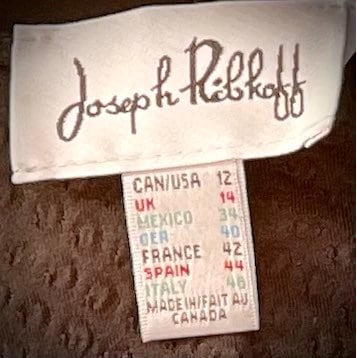 Joseph Ribkoff
CAN/USA 12
UK 14
MEXICO 34
GER 40
FRANCE 42
SPAIN 44
ITALY 46
MADE IN/FAIT AU
CANADA